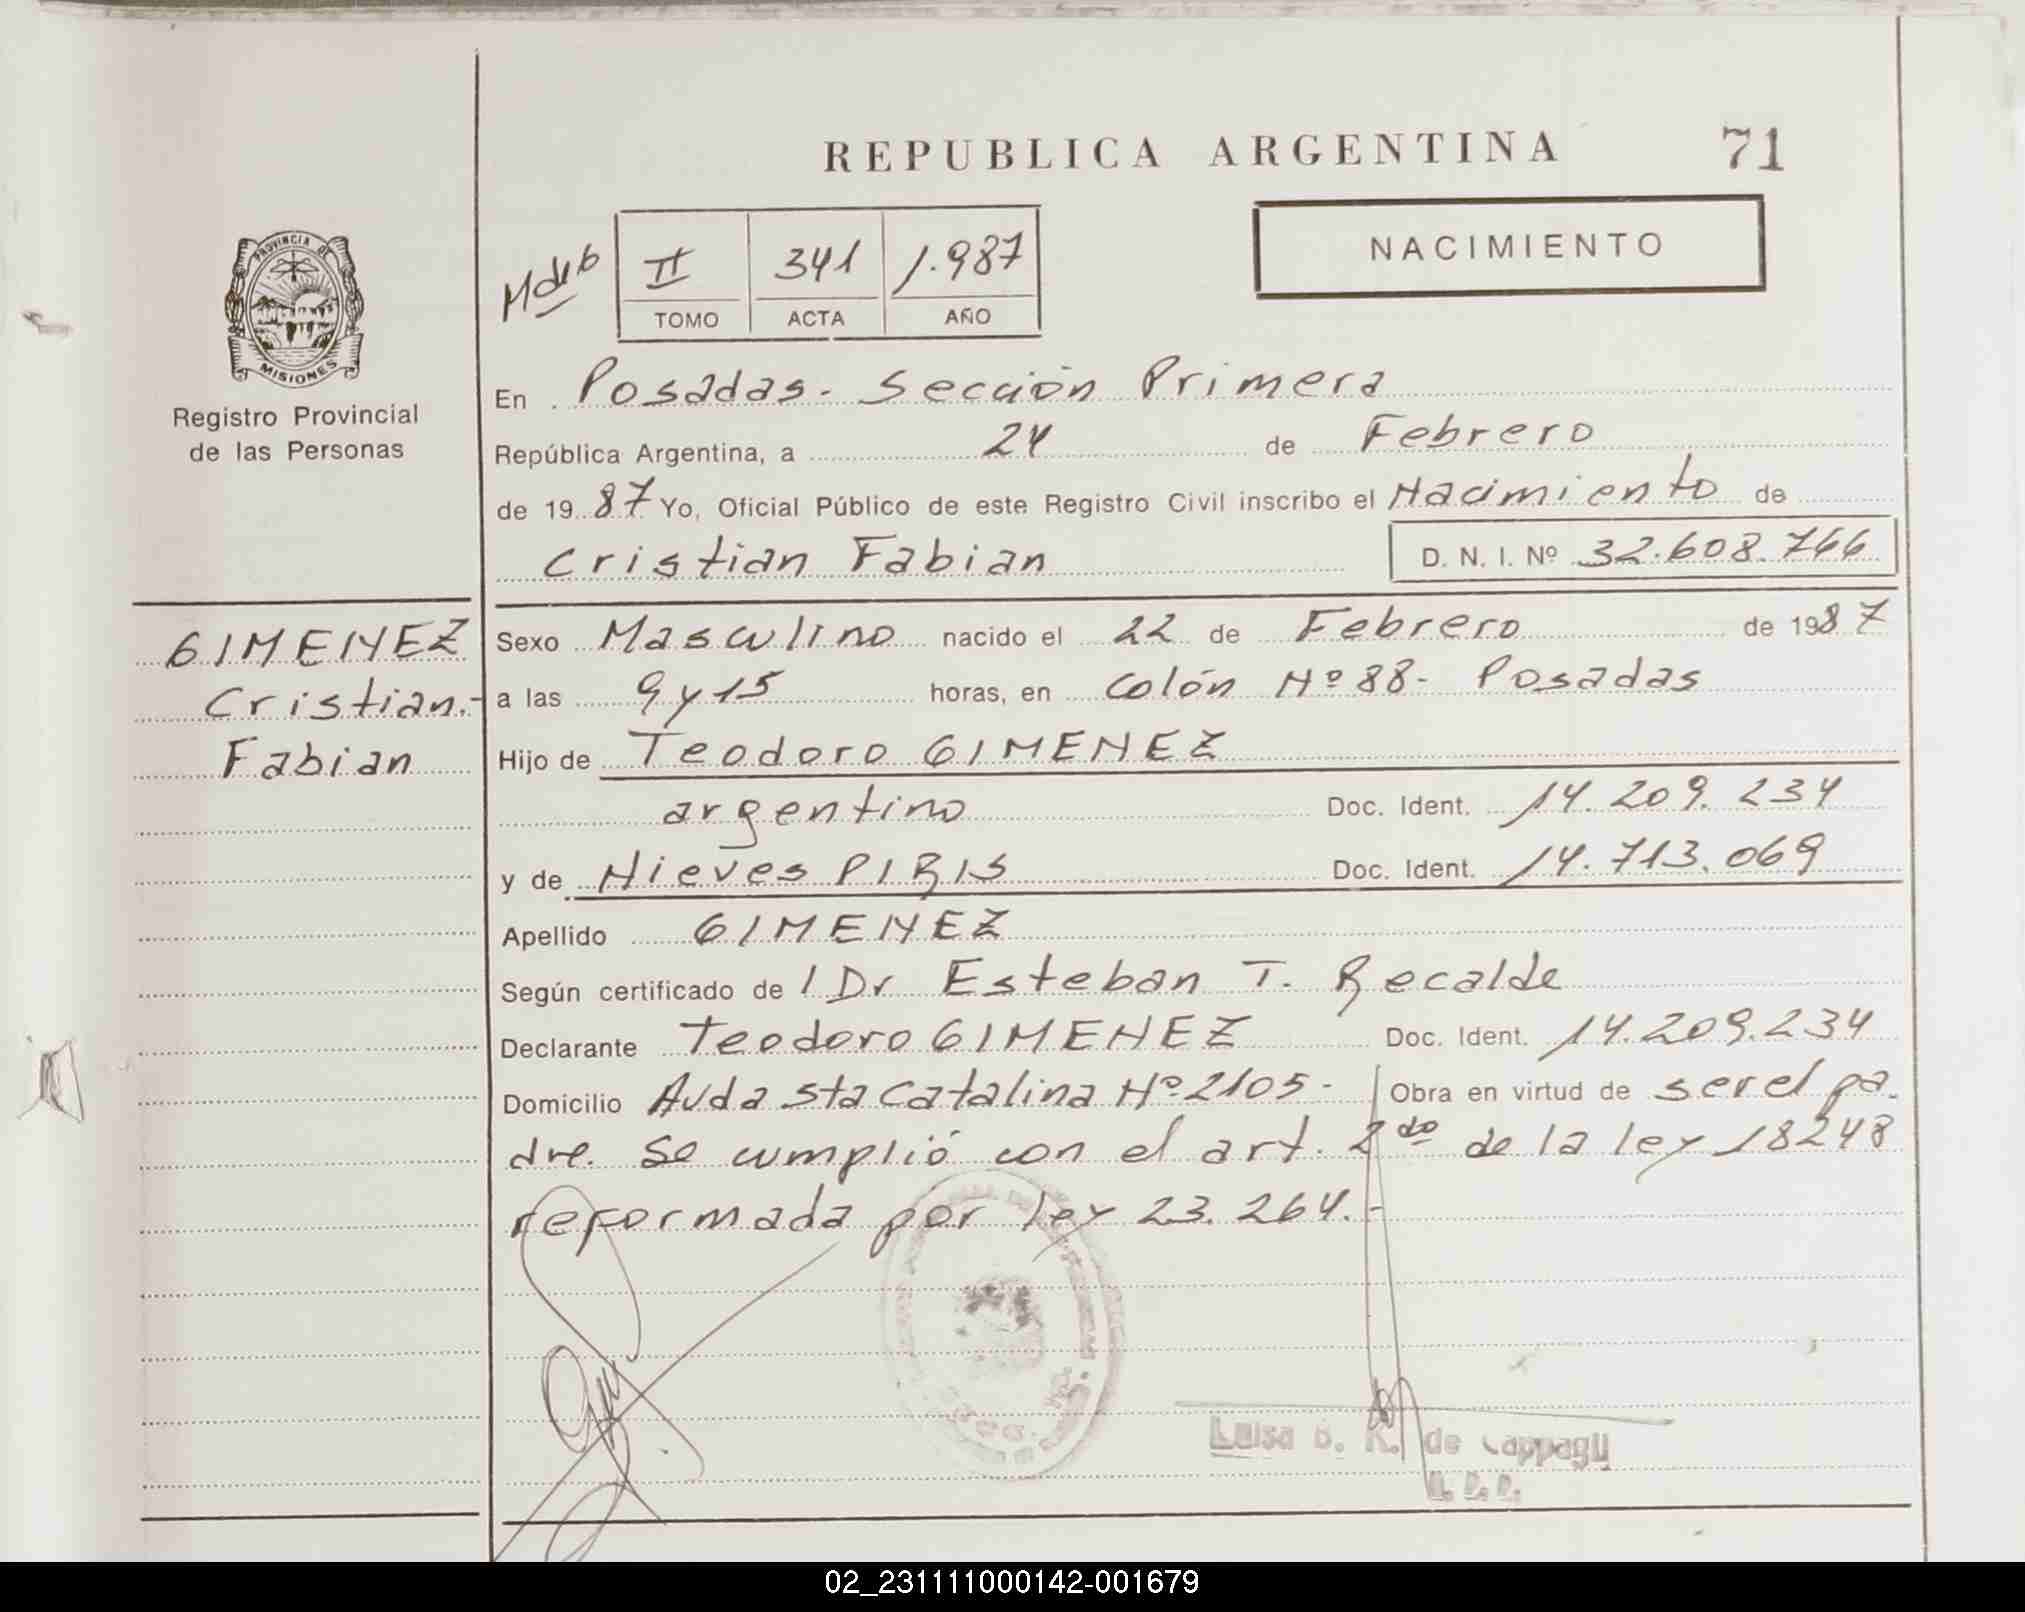 REPUBLICA ARGENTINA 71
NACIMIENTO
II 341 1.987
TOMO ACTA AÑO
PROVINCIA DE
MISIONES
Registro Provincial
de las Personas
En Posadas - Sección Primera
República Argentina, a 24 de Febrero
de 1987 Yo, Oficial Público de este Registro Civil inscribo el Nacimiento de
Cristian Fabian D. N. I. Nº 32.608.766
GIMENEZ
Cristian.-
Fabian
Sexo Masculino nacido el 22 de Febrero de 1987
a las 9 y 15 horas, en Colón Nº 88 - Posadas
Hijo de Teodoro GIMENEZ
argentino Doc. Ident. 14.209.234
y de Nieves PIRIS Doc. Ident. 14.713.069
Apellido GIMENEZ
Según certificado de l Dr Esteban T. Recalde
Declarante Teodoro GIMENEZ Doc. Ident. 14.209.234
Domicilio Avda Sta Catalina Nº 2105 - Obra en virtud de ser el pa-
dre. Se cumplió con el art. 2do de la ley 18248
reformada por ley 23.264.-
Luisa B. R. de
02_231111000142-001679